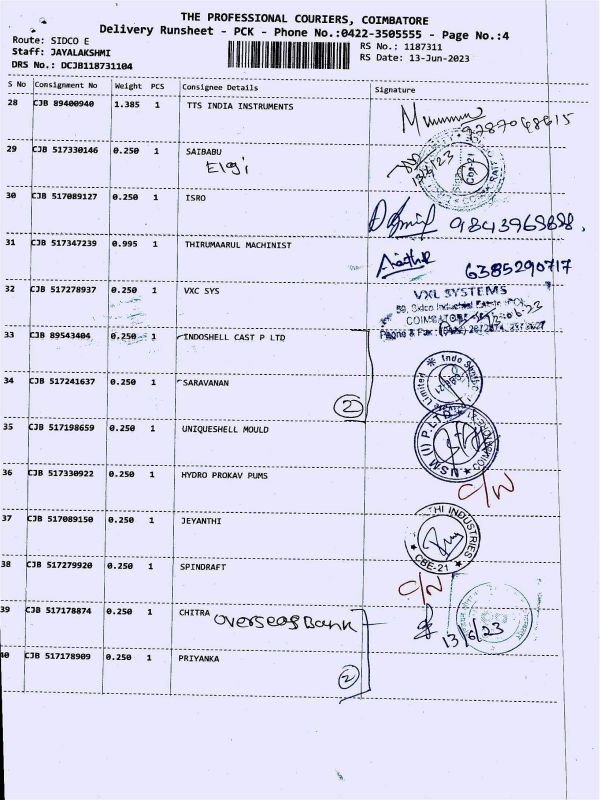 THE PROFESSIONAL COURIERS, COIMBATORE
Delivery Runsheet - PCK - Phone No.:0422-3505555 - Page No.:4
Route: SIDCO E
Staff: JAYALAKSHMI
DRS No.: DCJB118731104
RS No.: 1187311
RS Date: 13-Jun-2023
S No Consignment No Weight PCS Consignee Details Signature
28 CJB 89400940 1.385 1 TTS INDIA INSTRUMENTS
9287048615
29 CJB 517330146 0.250 1 SAIBABU
Elgi
13/6/23
CBE-21
30 CJB 517089127 0.250 1 ISRO
9843968888.
31 CJB 517347239 0.995 1 THIRUMAARUL MACHINIST
6385290717
32 CJB 517278937 0.250 1 VXC SYS
VXL SYSTEMS
59, Sidco Industrial Estate
Phone & Fax
33 CJB 89543404 0.250 1 INDOSHELL CAST P LTD
Indo Shell
Limited
34 CJB 517241637 0.250 1 SARAVANAN
2
35 CJB 517198659 0.250 1 UNIQUESHELL MOULD
USM (I) P. LTD
COIMBATORE
36 CJB 517330922 0.250 1 HYDRO PROKAV PUMS
C/N
37 CJB 517089150 0.250 1 JEYANTHI
THI INDUSTRIES
CBE-21
38 CJB 517279920 0.250 1 SPINDRAFT
C/N
39 CJB 517178874 0.250 1 CHITRA
overseas Bank
13/6/23
40 CJB 517178909 0.250 1 PRIYANKA
2